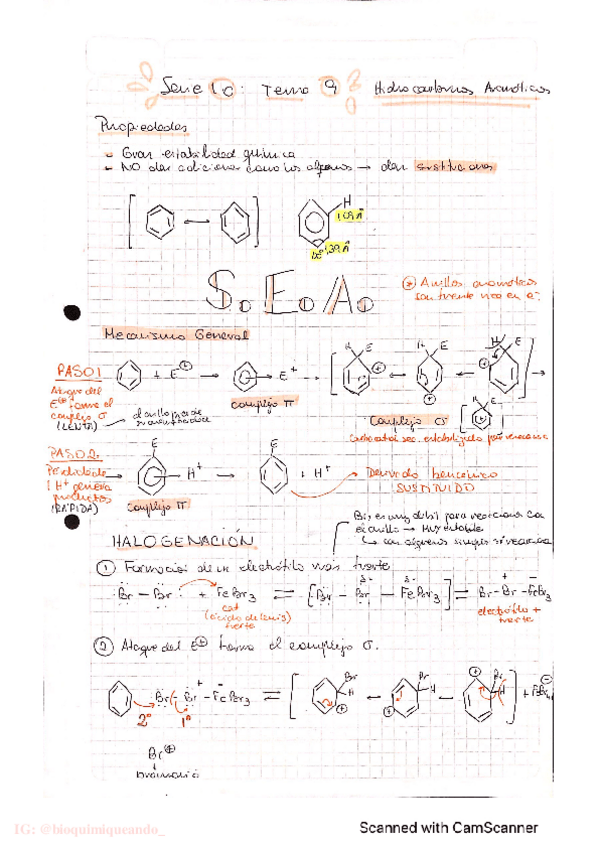 Serie 10: Tema 9 Hidrocarburos Aromáticos
Propiedades
Gran estabilidad química
NO dan adiciones como los alquenos → dan sustituciones
H
1,09 Å
1,39 Å
S.E.A.
* Anillos aromáticos
son fuente rica en e⁻
Mecanismo General
PASO 1
+ E⊕ → E⁺
complejo π
Ataque del
E⊕ forma el
complejo σ
(LENTA)
el anillo pierde
su aromaticidad
H E
Complejo σ
Carbocatión sec. estabilizado por resonancia
PASO 2
Pérdida de
1 H⁺ genera
productos
(RÁPIDA)
E
H⁺
complejo π
E
+ H⁺ → Derivado bencénico
SUSTITUIDO
Br₂ es muy débil para reaccionar con
el anillo → Muy estable
↳ con alquenos simples si reacciona
HALOGENACIÓN
① Formación de un electrófilo más fuerte
Br – Br + FeBr₃ ⇌ [Br – Br – FeBr₃] ⇌ Br – Br – FeBr₃
cat
(ácido de Lewis)
fuerte
electrófilo +
fuerte
② Ataque del E⊕ forma el complejo σ.
Br – Br – FeBr₃ ⇌ + FeBr₄
2° 1°
Br⊕
bromonio
IG: @bioquimiqueando_
Scanned with CamScanner